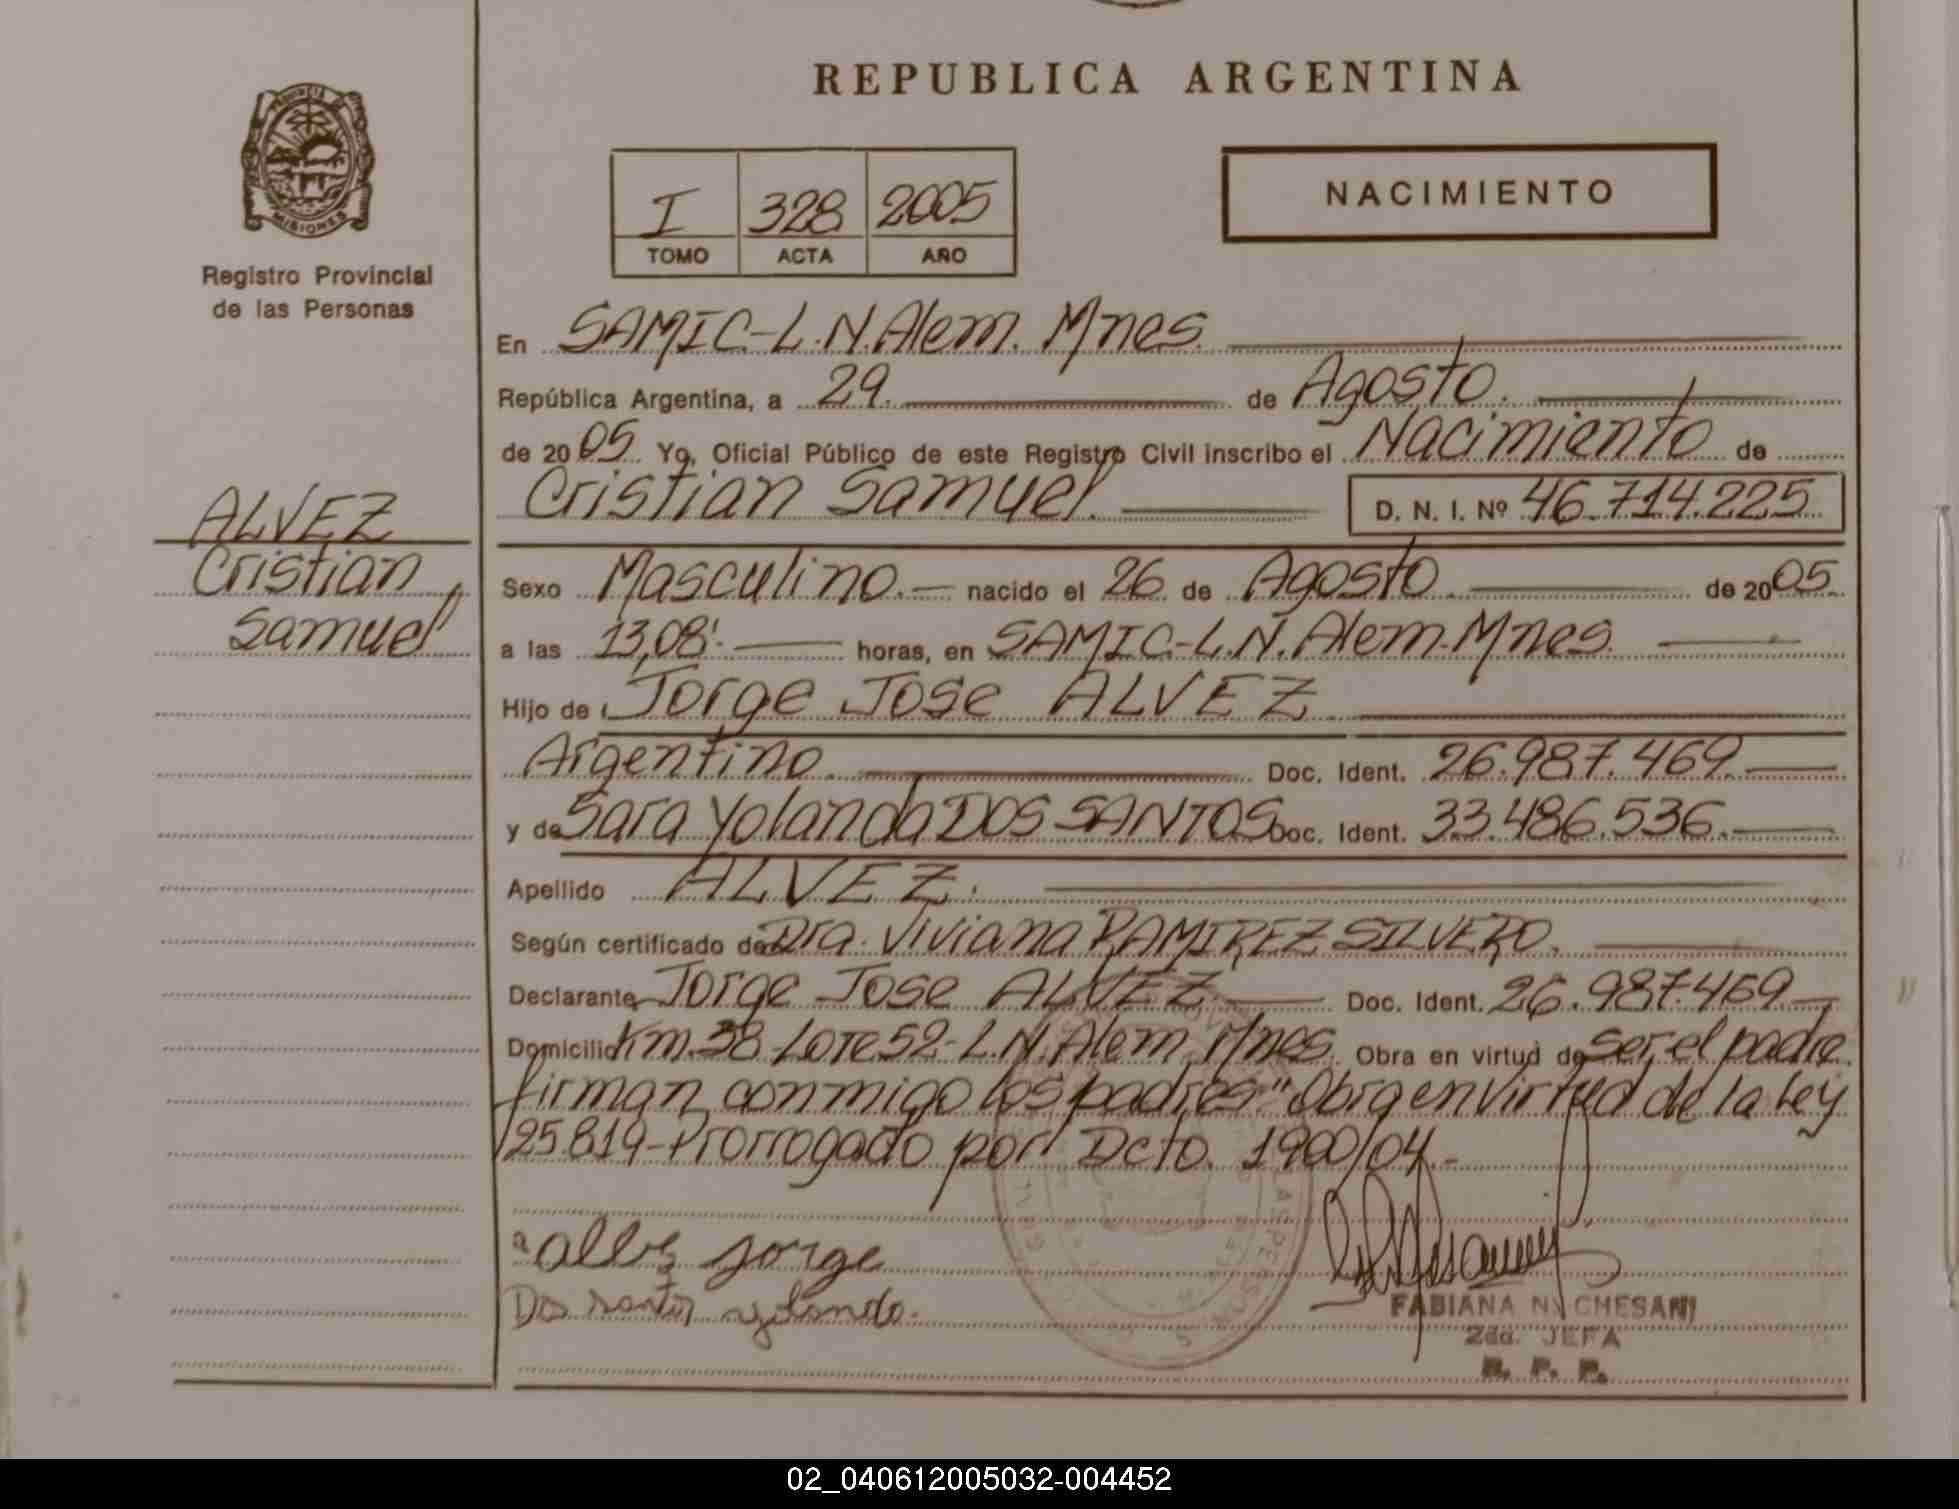 REPUBLICA ARGENTINA
PROVINCIA DE
MISIONES
Registro Provincial
de las Personas
I 328 2005
TOMO ACTA AÑO
NACIMIENTO
ALVEZ
Cristian
Samuel
En SAMIC-L.N.Alem. Mnes.
República Argentina, a 29. de Agosto.
de 2005. Yo, Oficial Público de este Registro Civil inscribo el Nacimiento de
Cristian Samuel. D. N. I. Nº 46.714.225
Sexo Masculino.- nacido el 26 de Agosto de 2005.
a las 13,08'. horas, en SAMIC-L.N.Alem-Mnes.
Hijo de Jorge Jose ALVEZ
Argentino. Doc. Ident. 26.987.469.
y de Sara Yolanda DOS SANTOS Doc. Ident. 33.486.536.
Apellido ALVEZ.
Según certificado de Dra. Viviana RAMIREZ SILVERO.
Declarante Jorge Jose ALVEZ Doc. Ident. 26.987.469
Domicilio Km.38-Lote 52-L.N.Alem Mnes. Obra en virtud de ser el padre.
firman conmigo los padres." Obra en Virtud de la Ley
25.819-Prorrogado por Dcto. 1900/04.-
jorge
FABIANA N. CHESANI
2da. JEFA
R. P. P.
02_040612005032-004452